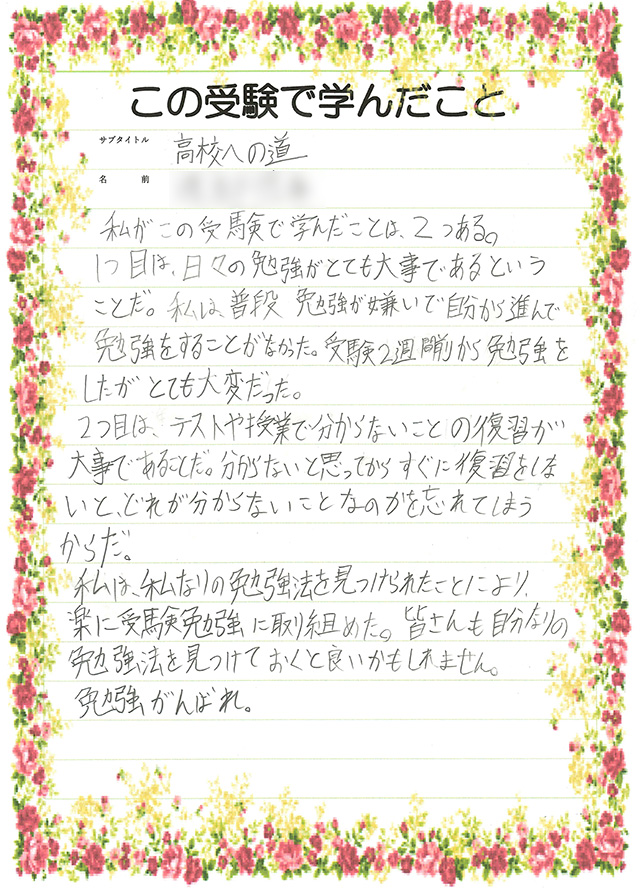 この受験で学んだこと
サブタイトル 高校への道
名前
私がこの受験で学んだことは、2つある。
1つ目は、日々の勉強がとても大事であるという
ことだ。私は普段 勉強が嫌いで自分から進んで
勉強をすることがなかった。受験2週間前から勉強を
したがとても大変だった。
2つ目は、テストや授業で分からないことの復習が
大事であることだ。分からないと思ってからすぐに復習をしな
いと、どれが分からないことなのかを忘れてしまう
からだ。
私は、私なりの勉強法を見つけられたことにより、
楽に受験勉強に取り組めた。皆さんも自分なりの
勉強法を見つけておくと良いかもしれません。
勉強がんばれ。